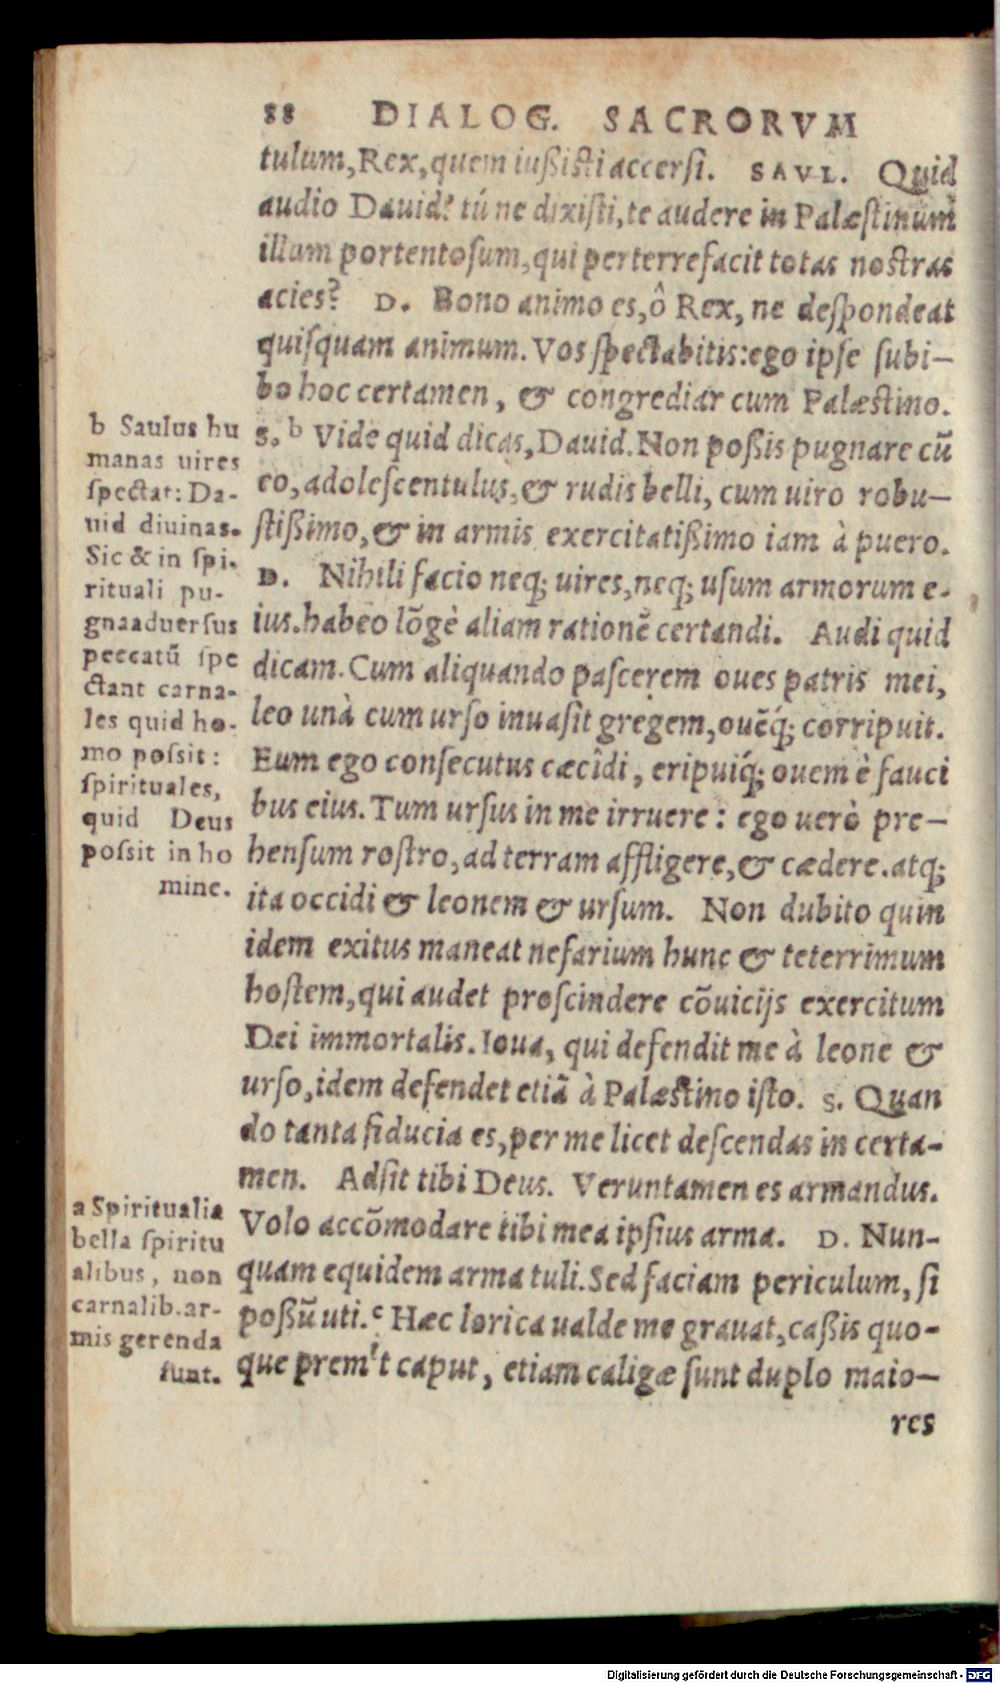 88 DIALOG. SACRORVM
tulum, Rex, quem iußisti accersi. SAVL. Quid
audio Dauid? tú ne dixisti, te audere in Palæstinum
illum portentosum, qui perterrefacit totas nostras
acies? D. Bono animo es, ô Rex, ne despondeat
quisquam animum. Vos spectabitis: ego ipse subi-
bo hoc certamen, & congrediar cum Palæstino.
S. ᵇ Vide quid dicas, Dauid. Non poßis pugnare cū
eo, adolescentulus, & rudis belli, cum uiro robu-
stißimo, & in armis exercitatißimo iam à puero.
D. Nihili facio neq; uires, neq; usum armorum e-
ius. habeo lōgè aliam rationē certandi. Audi quid
dicam. Cum aliquando pascerem oues patris mei,
leo unà cum urso inuasit gregem, ouēq́; corripuit.
Eum ego consecutus cæcîdi, eripuiq́; ouem è fauci
bus eius. Tum ursus in me irruere: ego uerò pre-
hensum rostro, ad terram affligere, & cædere. atq;
ita occidi & leonem & ursum. Non dubito quin
idem exitus maneat nefarium hunc & teterrimum
hostem, qui audet proscindere cōuicijs exercitum
Dei immortalis. Ioua, qui defendit me à leone &
urso, idem defendet etiā à Palæstino isto. S. Quan
do tanta fiducia es, per me licet descendas in certa-
men. Adsit tibi Deus. Veruntamen es armandus.
Volo accōmodare tibi mea ipsius arma. D. Nun-
quam equidem arma tuli. Sed faciam periculum, si
poßū uti. ᶜ Hæc lorica ualde me grauat, caßis quo-
que premit caput, etiam caligæ sunt duplo maio-
res
b Saulus hu
manas uires
spectat: Da-
uid diuinas.
Sic & in spi-
rituali pu-
gna aduersus
peccatū spe
ctant carna-
les quid ho-
mo possit:
spirituales,
quid Deus
possit in ho
mine.
a Spiritualia
bella spiritu
alibus, non
carnalib. ar-
mis gerenda
sunt.
Digitalisierung gefördert durch die Deutsche Forschungsgemeinschaft - DFG